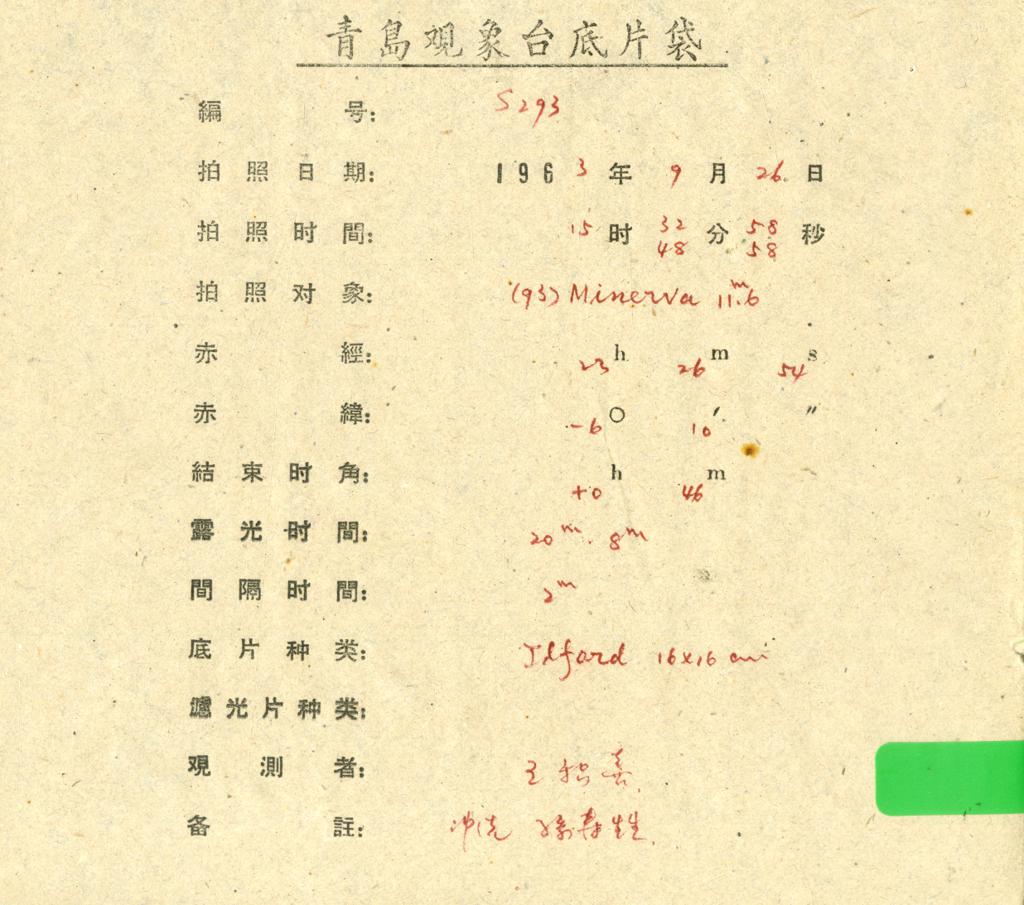 青島观象台底片袋
編号: S293
拍照日期: 1963年9月26日
拍照时間: 15时32分58秒
48 58
拍照对象: (93) Minerva 11.ᵐ6
赤經: 23h 26m 54s
赤緯: -6° 10′ ″
結束时角: +0h 46m
露光时間: 20ᵐ. 8ᵐ
間隔时間: 2ᵐ
底片种类: Ilford 16x16 cm
濾光片种类:
观測者: 王
备註: 冲洗 孫寿